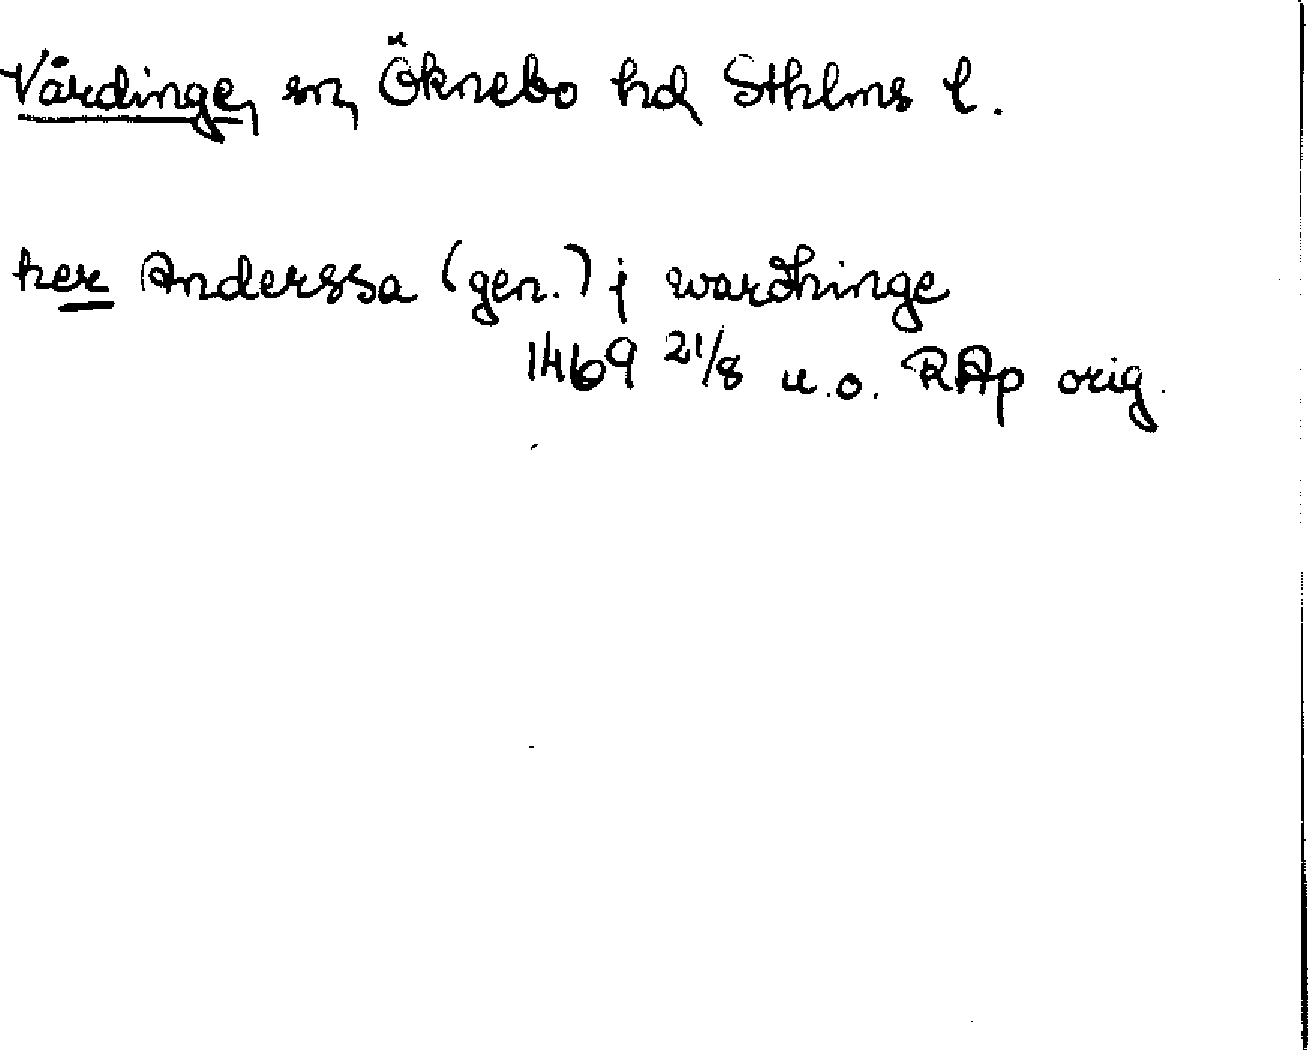 Vårdinge, sn, Öknebo hd, Sthlms l.
her Anderssa (gen.) j wardhinge
1469 21/8 u.o. RAp orig.